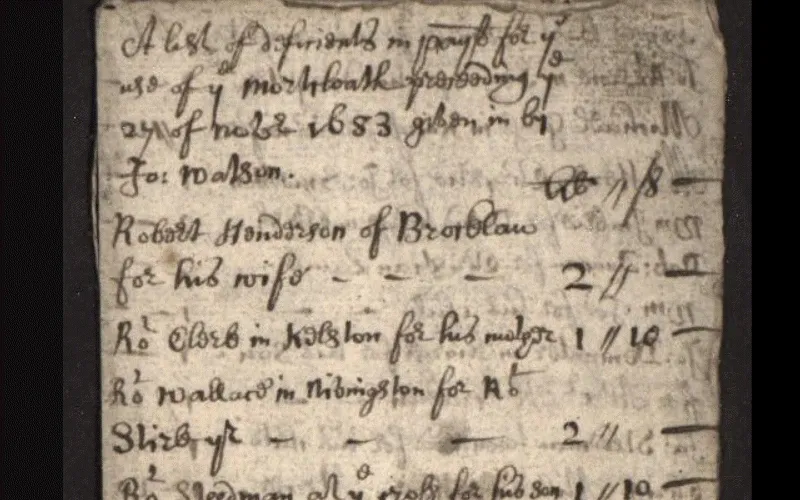 A list of deficients in paȳt for yᵉ
use of yᵉ mortcloath preceeding yᵉ
27 of Novbr 1683 given in by
Jo: Watson.
lib // s
Robert Henderson of Brocklaw
for his wife – – – 2 // —
Roᵗ Clerk in Kelston for his moyer 1 // 10 —
Roᵗ Wallace in Nivingston for Roᵗ
Stirk yr – – — 2 // —
Roᵗ Steedman at yᵉ cross for his son 1 // 10 —